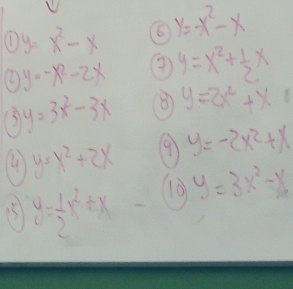 ① y = x² - x
② y = -x² - 2x
③ y = 3x² - 3x
④ y = x² + 2x
⑤ y = 1/2 x² + x
⑥ y = -x² - x
⑦ y = x² + 1/2 x
⑧ y = 2x² + x
⑨ y = -2x² + x
⑩ y = 3x² - x